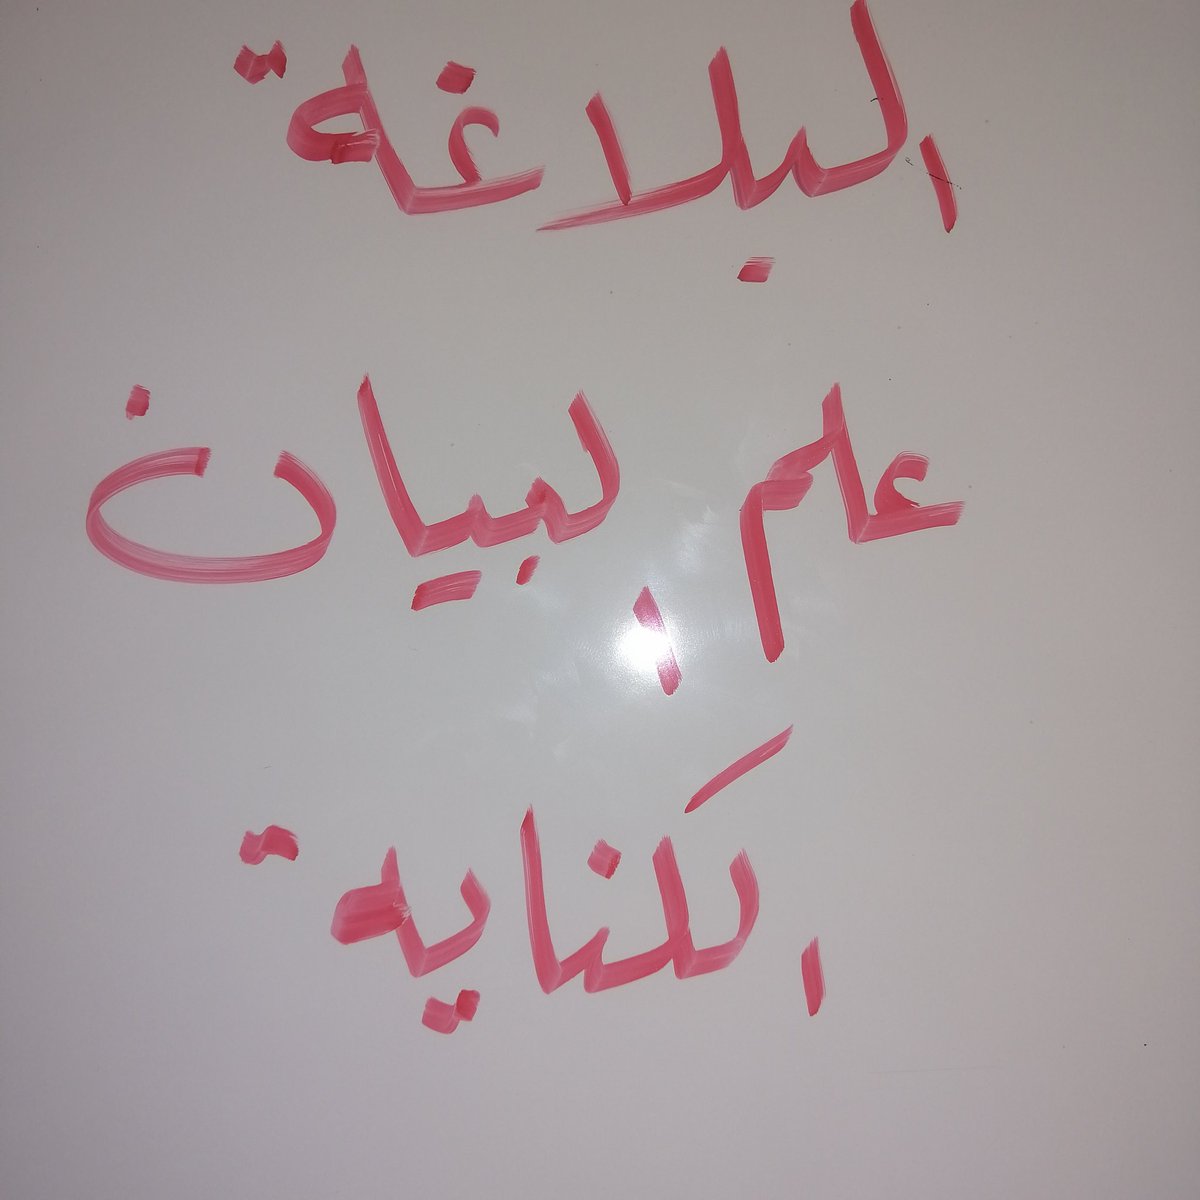 البلاغة
علم البيان
الكناية